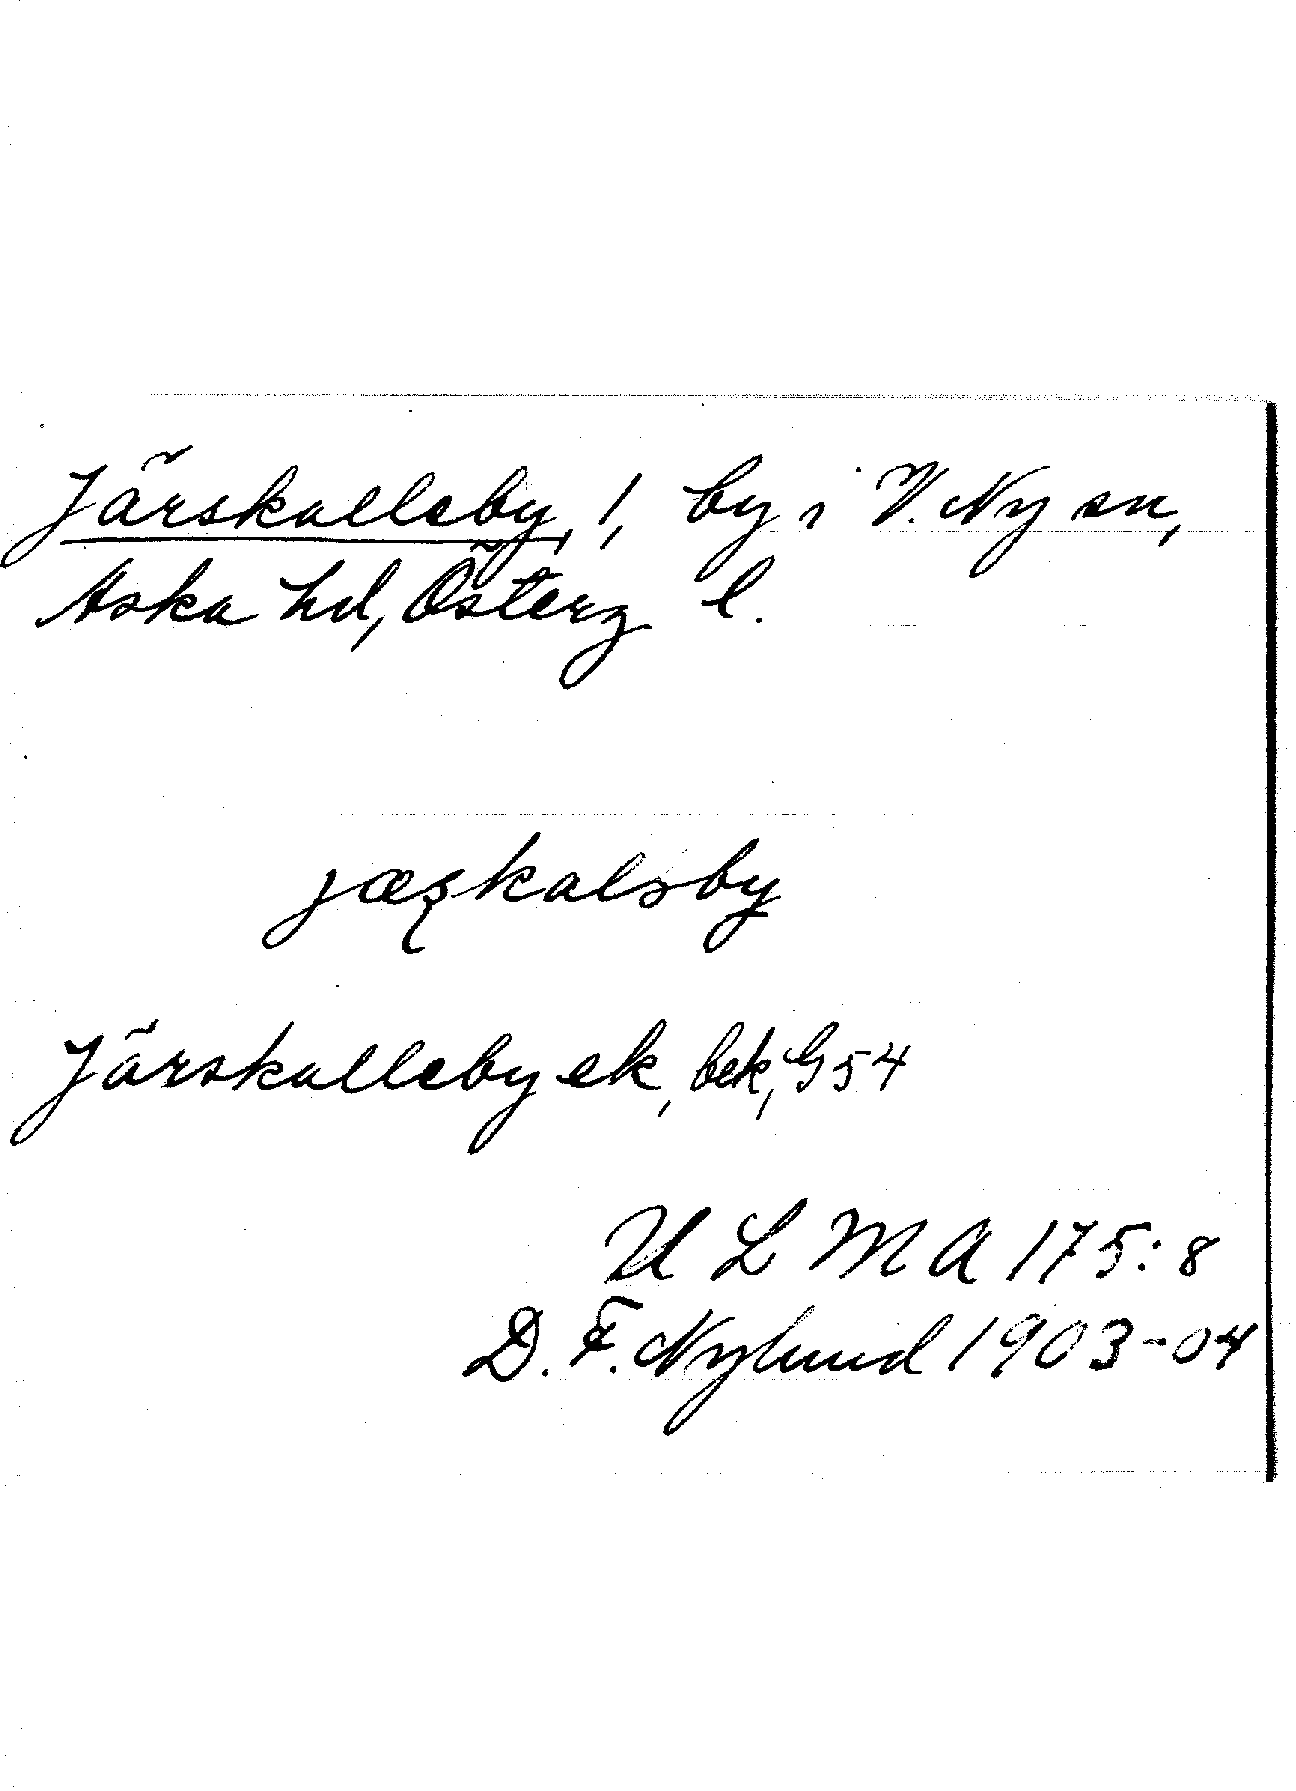 Järskalleby, 1, by i V. Ny sn,
Aska hd, Österg l.
jæʂkalsby
Järskalleby ek, bek, G 54
U L M A 175:8
D. F. Nylund 1903-04